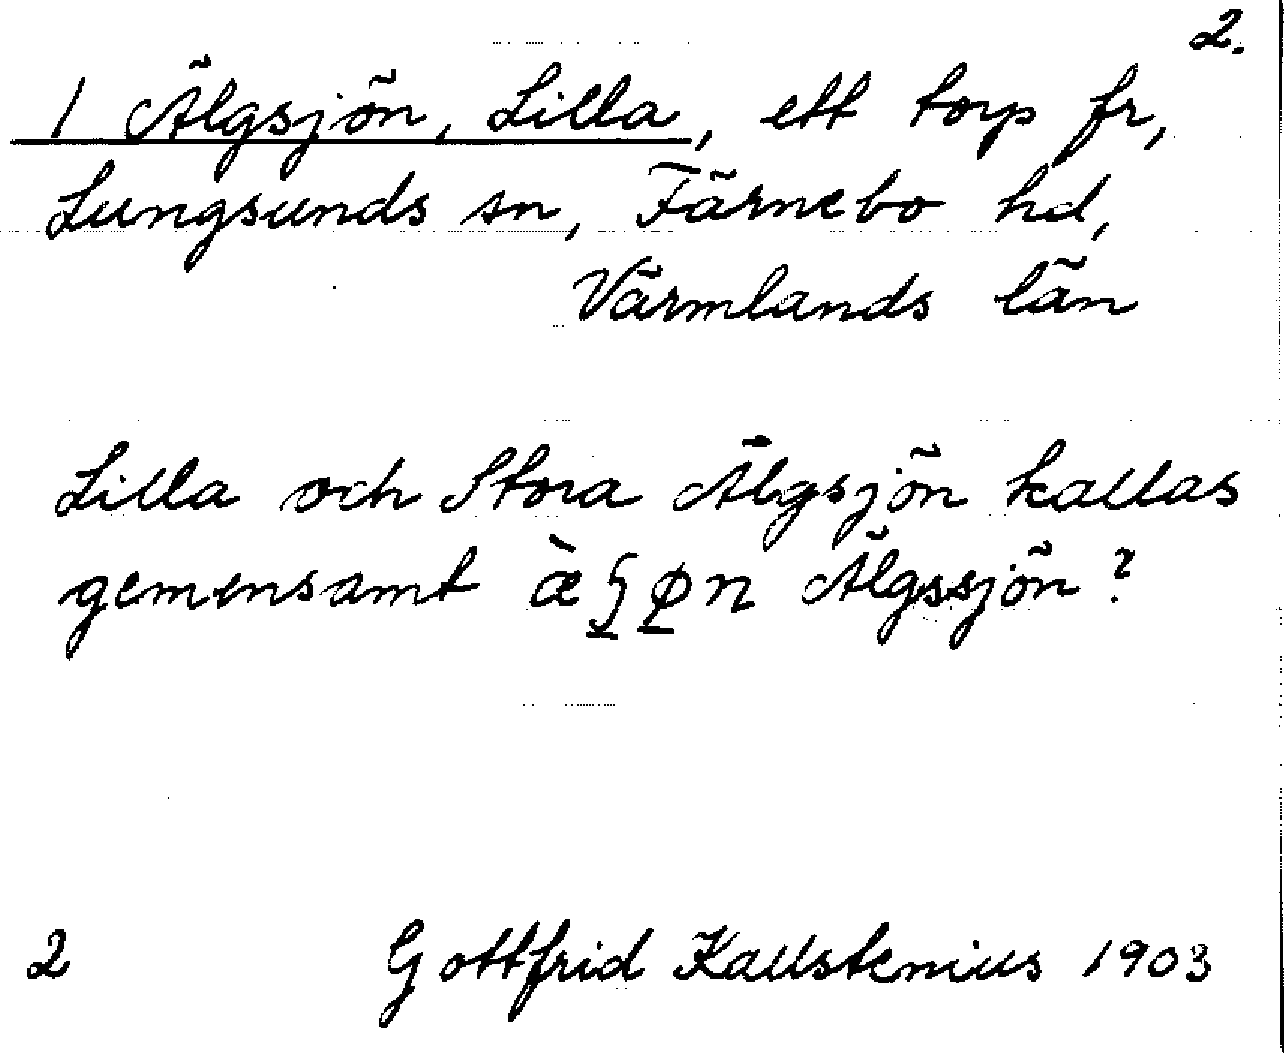 2.
1 Älgsjön, Lilla, ett torp fr,
Lungsunds sn, Färnebo hd,
Värmlands län
Lilla och Stora Älgsjön kallas
gemensamt Älgssjön?
2 Gottfrid Kallstenius 1903